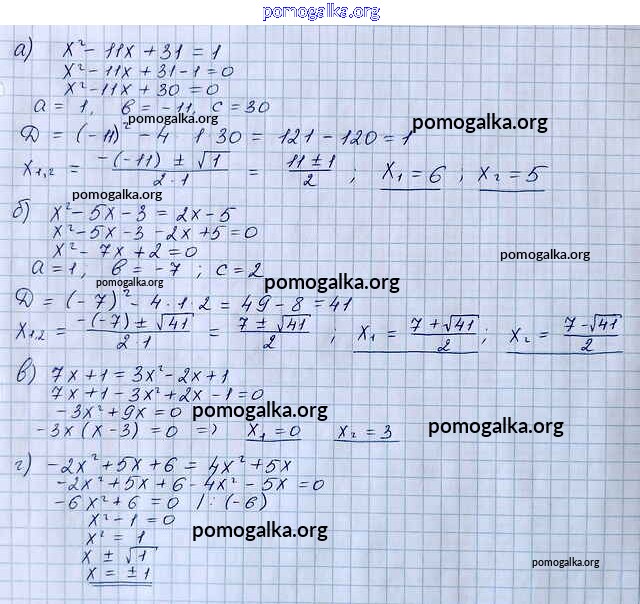 pomogalka.org
а) x² - 11x + 31 = 1
x² - 11x + 31 - 1 = 0
x² - 11x + 30 = 0
a = 1, b = -11, c = 30
pomogalka.org
pomogalka.org
D = (-11)² - 4 · 1 · 30 = 121 - 120 = 1
x₁,₂ = (-(-11) ± √1)/(2·1) = (11 ± 1)/2 ; x₁ = 6 ; x₂ = 5
pomogalka.org
б) x² - 5x - 3 = 2x - 5
x² - 5x - 3 - 2x + 5 = 0
x² - 7x + 2 = 0
pomogalka.org
a = 1, b = -7 ; c = 2
pomogalka.org
pomogalka.org
D = (-7)² - 4 · 1 · 2 = 49 - 8 = 41
x₁,₂ = (-(-7) ± √41)/(2·1) = (7 ± √41)/2 ; x₁ = (7 + √41)/2 ; x₂ = (7 - √41)/2
в) 7x + 1 = 3x² - 2x + 1
7x + 1 - 3x² + 2x - 1 = 0
-3x² + 9x = 0
pomogalka.org
-3x (x - 3) = 0 => x₁ = 0 x₂ = 3
pomogalka.org
г) -2x² + 5x + 6 = 4x² + 5x
-2x² + 5x + 6 - 4x² - 5x = 0
-6x² + 6 = 0 /: (-6)
x² - 1 = 0
pomogalka.org
x² = 1
x ± √1
pomogalka.org
x = ±1